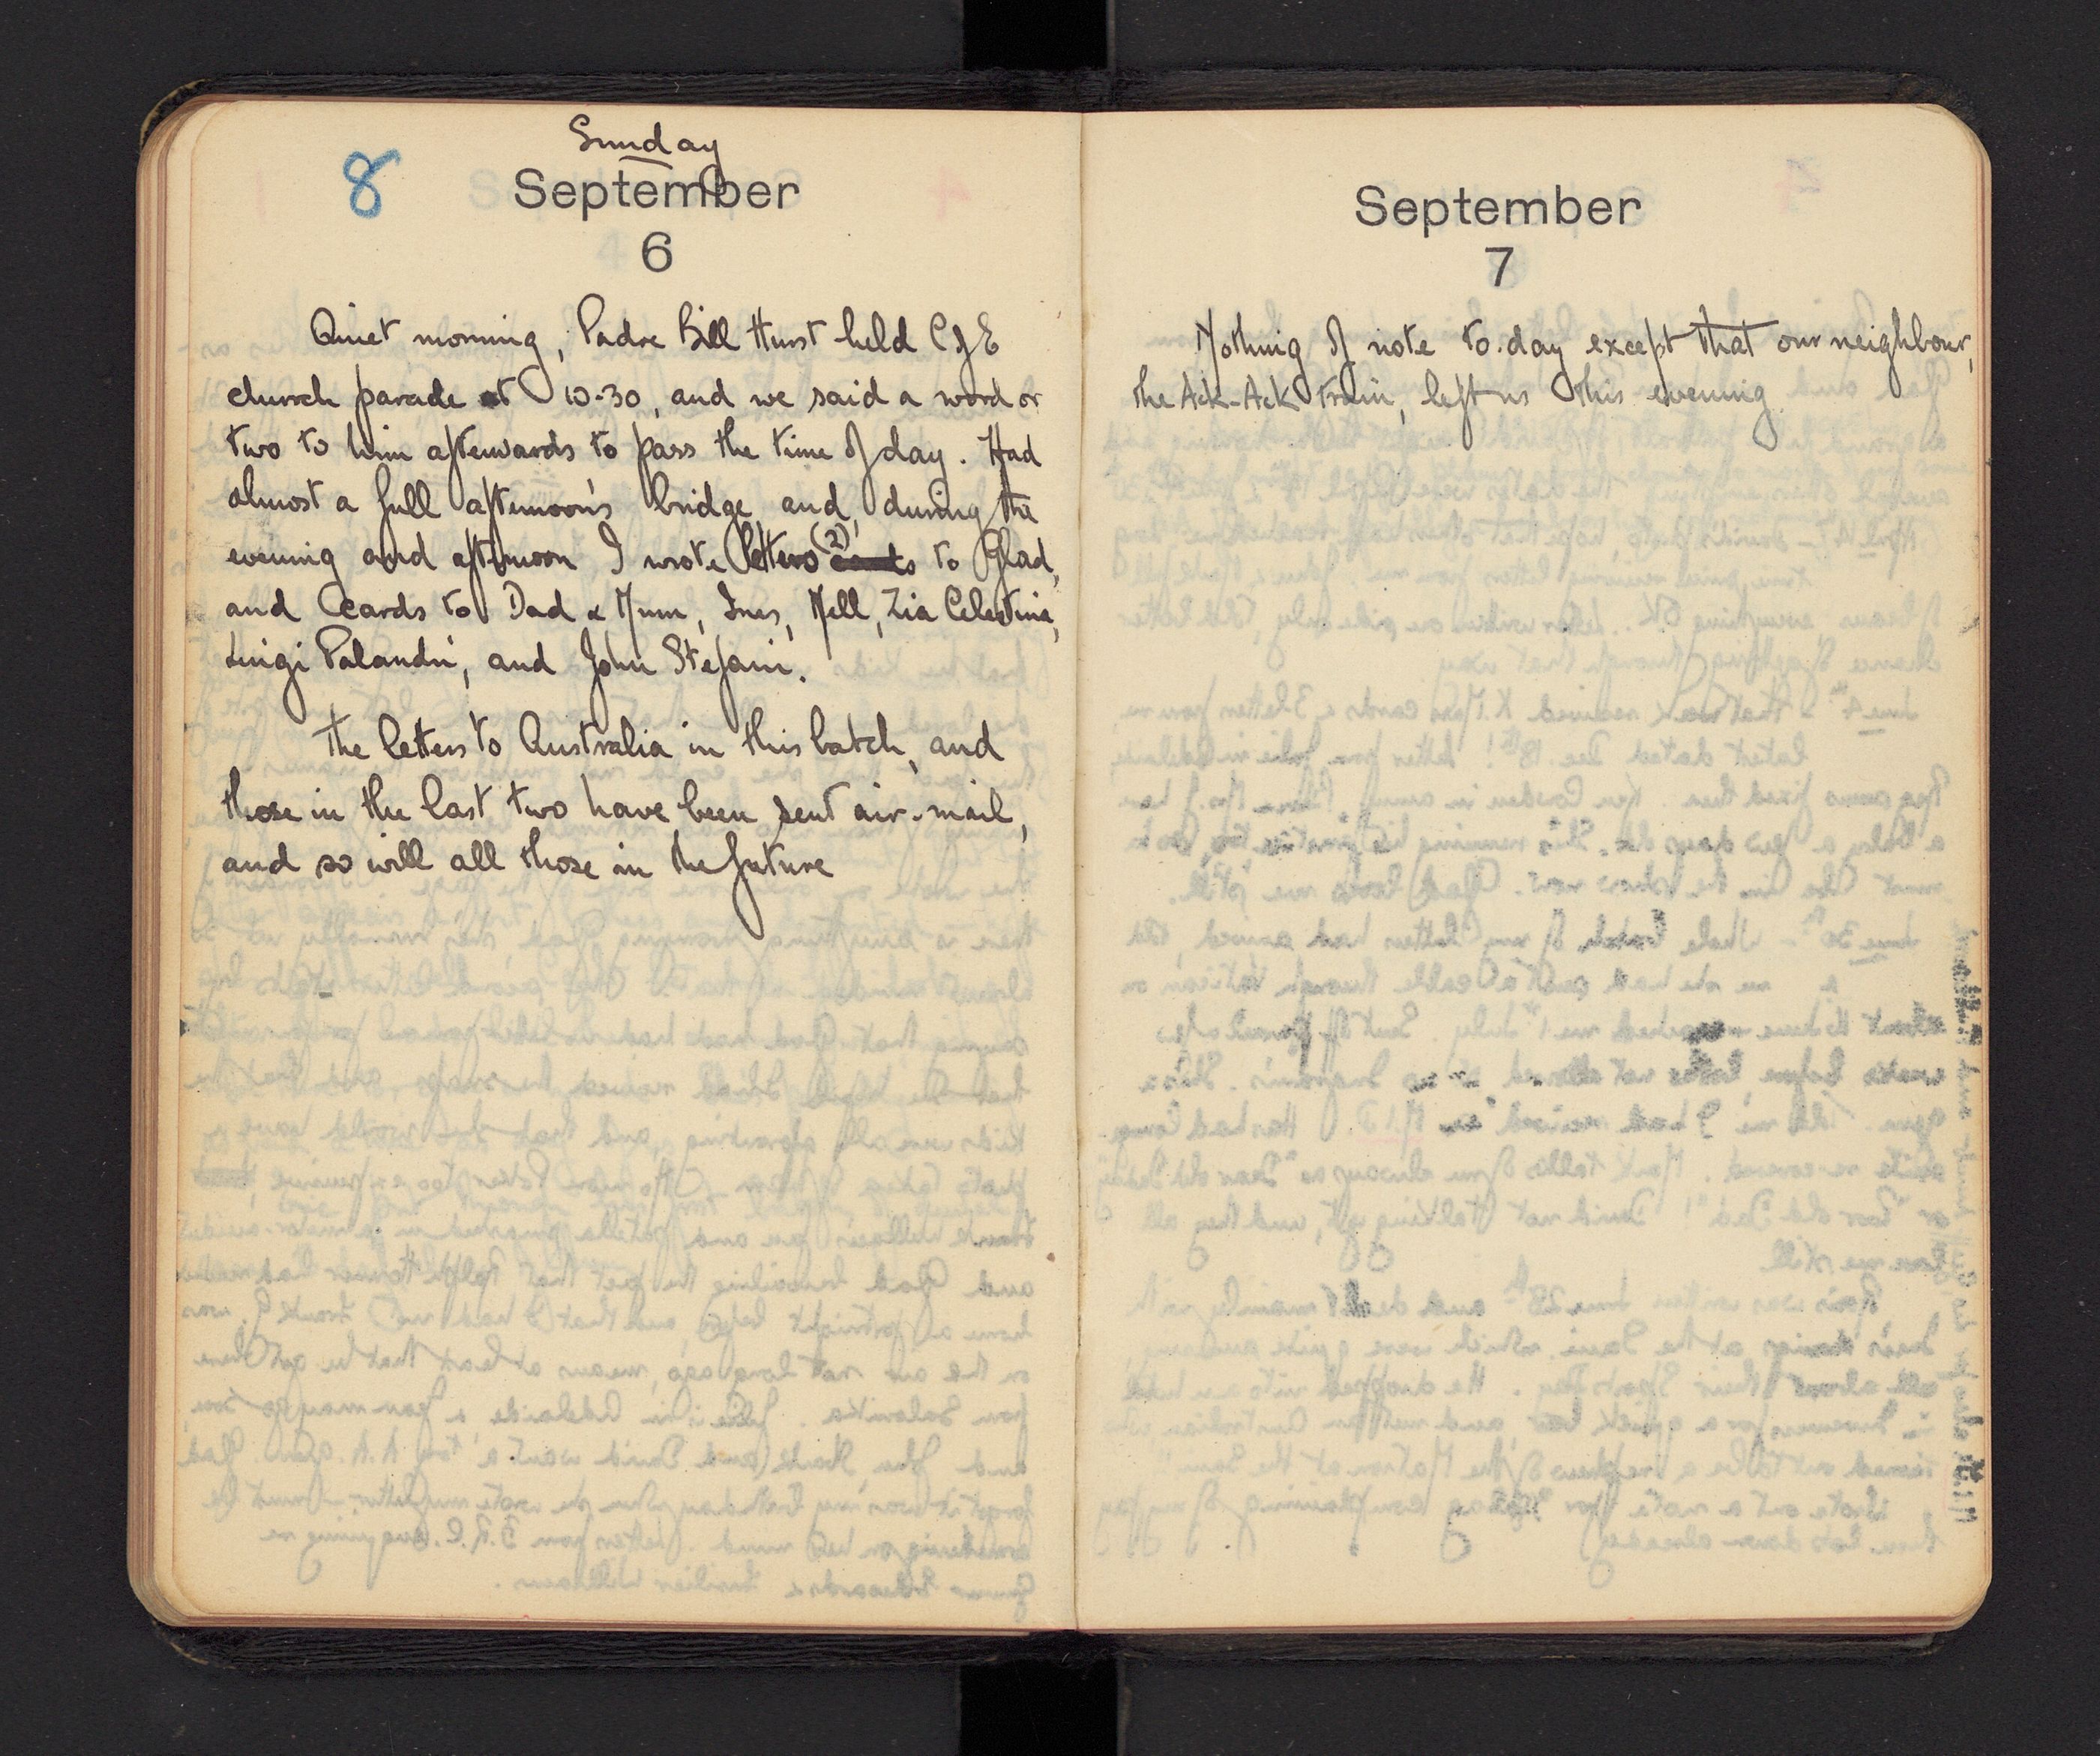 8
Sunday
September
6
Quiet morning, Padre Bill Hurst held C of E
church parade at 10-30, and we said a word or
two to him afterwards to pass the time of day. Had
almost a full afternoon's bridge and, during the
evening and afternoon I wrote letters (2) to Glad,
and cards to Dad & Mum, Ines, Nell, Zia Celestina,
Luigi Palandri, and John Stefani.
The letters to Australia in this batch, and
those in the last two have been sent air-mail,
and so will all those in the future
September
7
Nothing of note to-day except that our neighbour,
the Ack-Ack train, left us this evening.